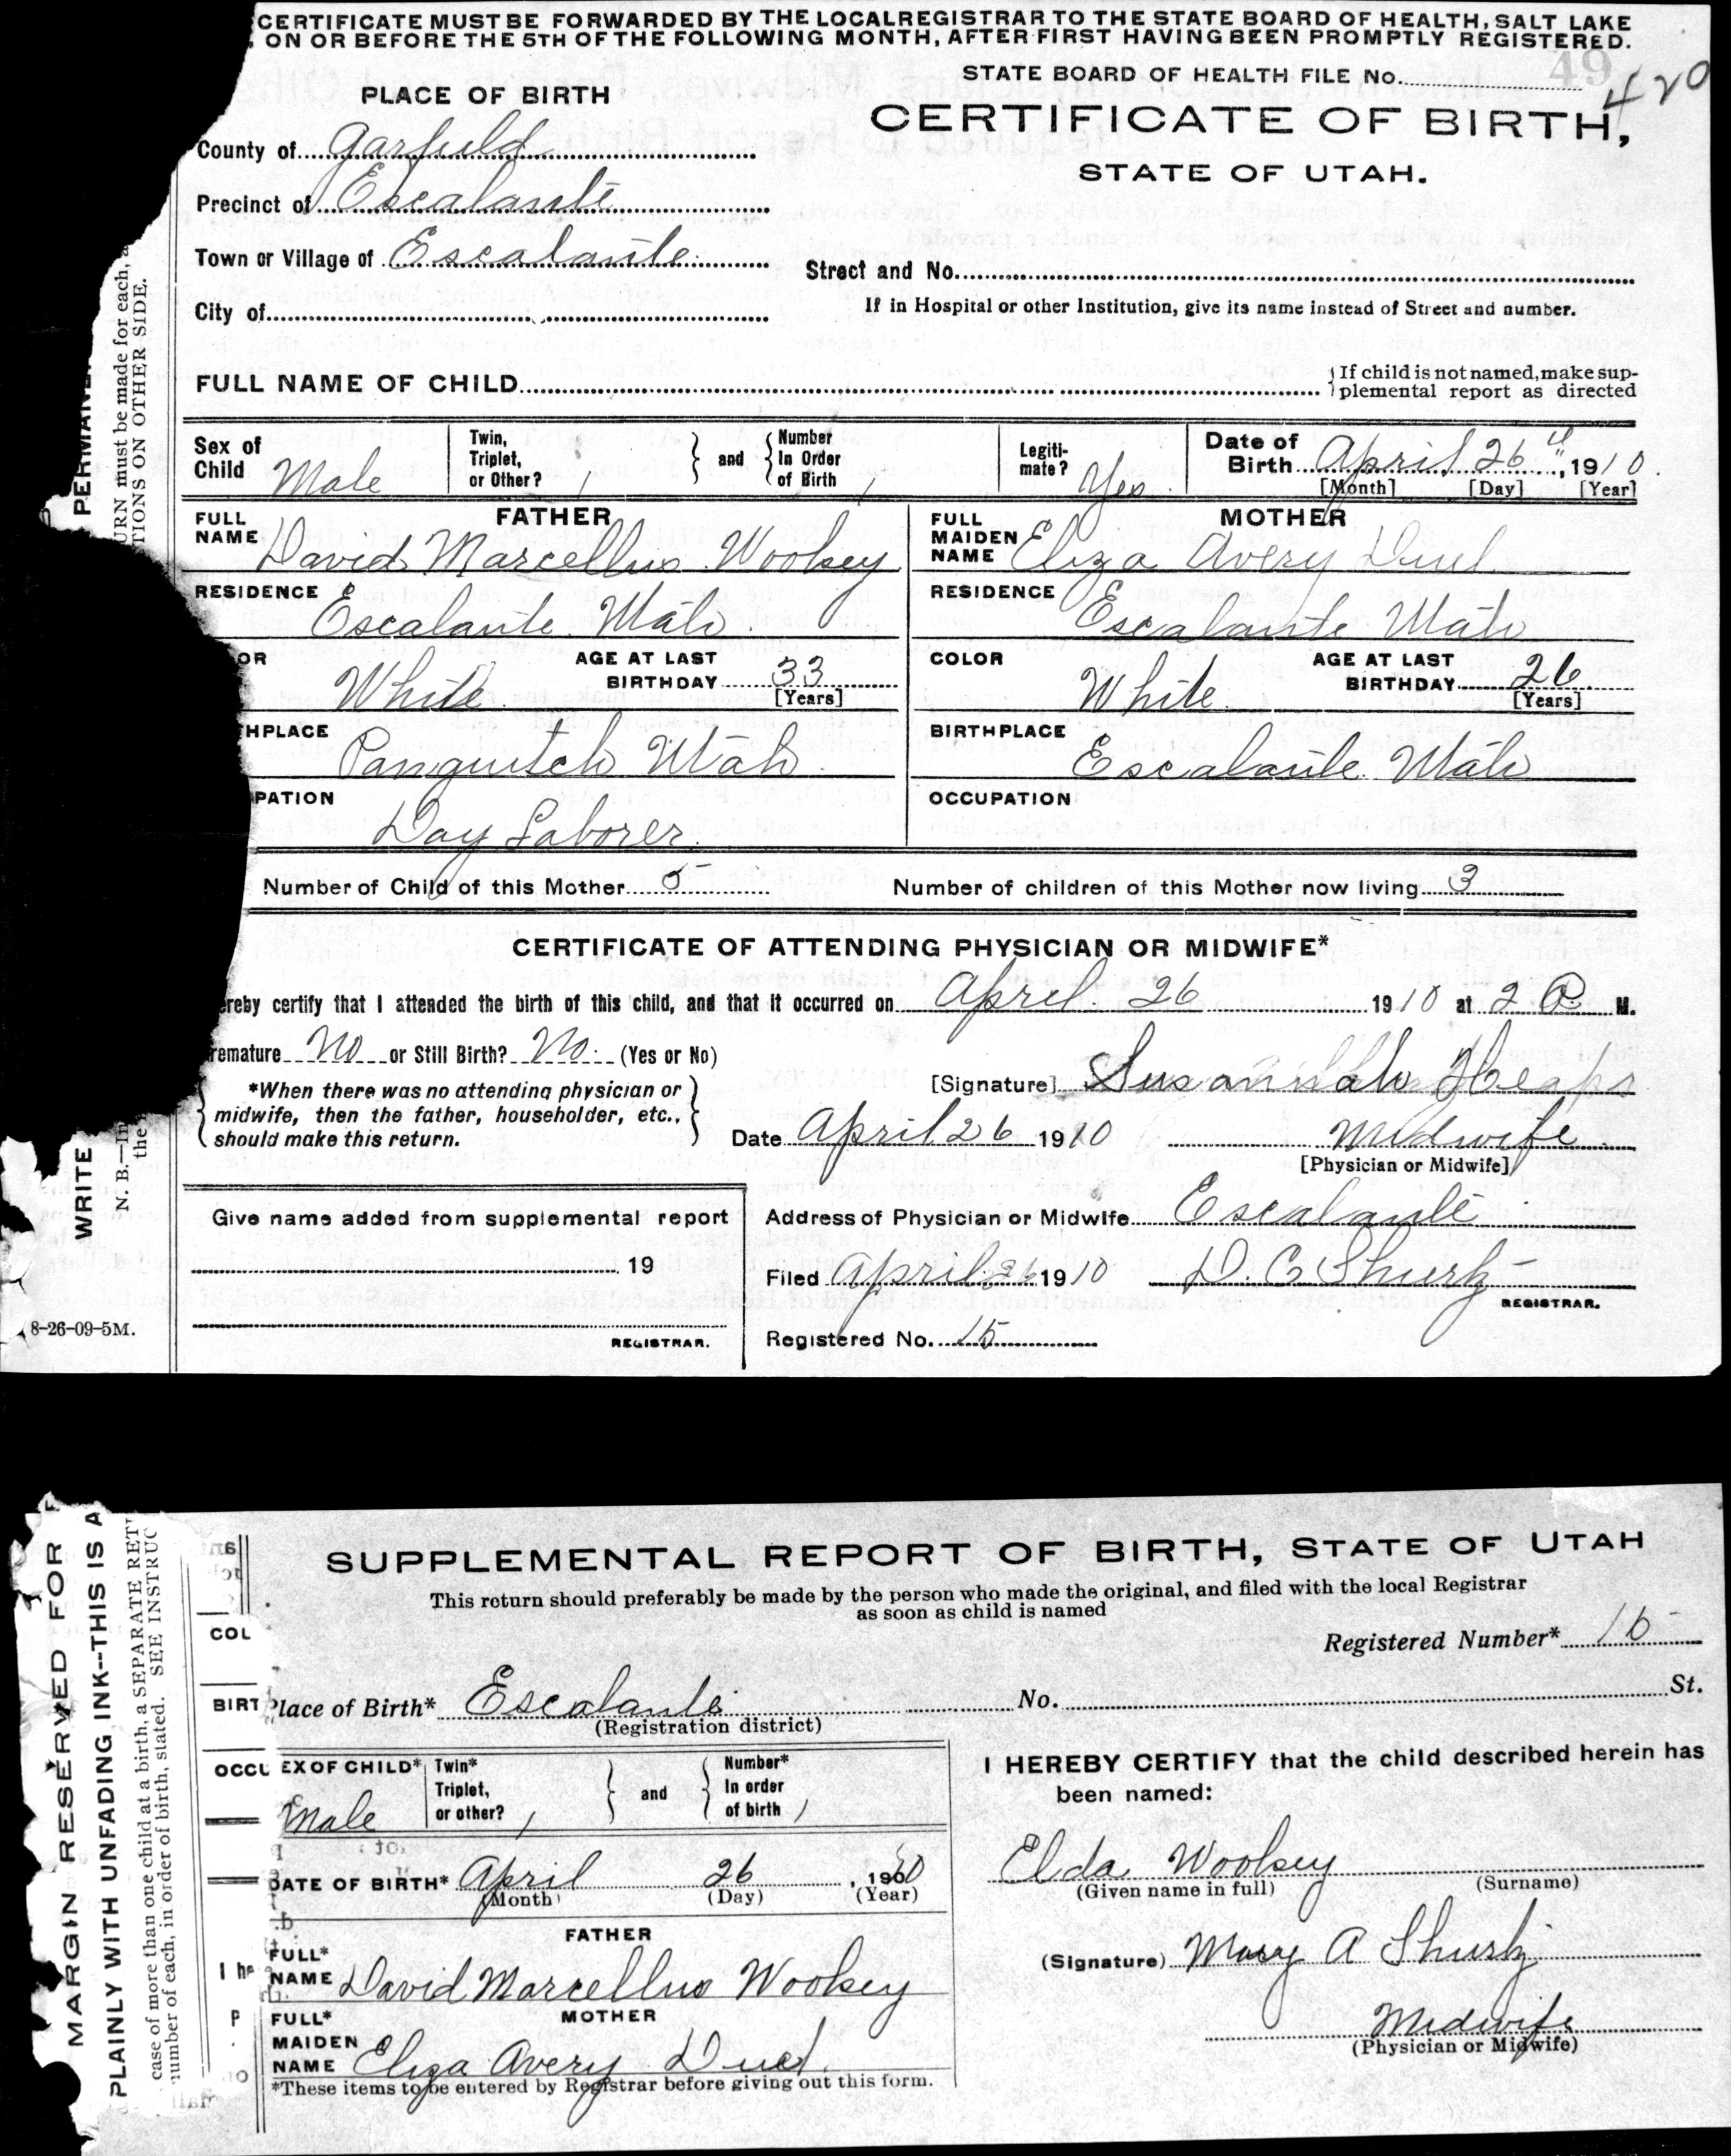 CERTIFICATE MUST BE FORWARDED BY THE LOCAL REGISTRAR TO THE STATE BOARD OF HEALTH, SALT LAKE
ON OR BEFORE THE 5TH OF THE FOLLOWING MONTH, AFTER FIRST HAVING BEEN PROMPTLY REGISTERED.
49
STATE BOARD OF HEALTH FILE No.
420
CERTIFICATE OF BIRTH,
STATE OF UTAH.
PLACE OF BIRTH
County of Garfield
Precinct of Escalante
Town or Village of Escalante
Street and No.
City of
If in Hospital or other Institution, give its name instead of Street and number.
FULL NAME OF CHILD
If child is not named, make sup-
plemental report as directed
Sex of Child Male
Twin, Triplet, or Other? 1 and Number In Order of Birth 1
Legiti-mate? Yes
Date of Birth April 26", 1910
[Month] [Day] [Year]
FATHER
FULL NAME David Marcellus Woolsey
RESIDENCE Escalante Utah
OR White
AGE AT LAST BIRTHDAY 33
[Years]
HPLACE Panguitch Utah
PATION Day Laborer
MOTHER
FULL MAIDEN NAME Eliza Avery Duel
RESIDENCE Escalante Utah
COLOR White
AGE AT LAST BIRTHDAY 26
[Years]
BIRTHPLACE Escalante Utah
OCCUPATION
Number of Child of this Mother 5
Number of children of this Mother now living 3
CERTIFICATE OF ATTENDING PHYSICIAN OR MIDWIFE*
ereby certify that I attended the birth of this child, and that it occurred on April 26 1910 at 2 P. M.
remature No or Still Birth? No. (Yes or No)
*When there was no attending physician or
midwife, then the father, householder, etc.,
should make this return.
[Signature] Susannah Heaps
Date April 26 1910 Midwife
[Physician or Midwife]
Give name added from supplemental report
19
REGISTRAR.
Address of Physician or Midwife Escalante
Filed April 26 1910 D. C Shurtz
REGISTRAR.
Registered No. 15
PERMANE
URN must be made for each, a
TIONS ON OTHER SIDE.
WRITE
N. B.—In
the
8-26-09-5M.
SUPPLEMENTAL REPORT OF BIRTH, STATE OF UTAH
This return should preferably be made by the person who made the original, and filed with the local Registrar
as soon as child is named
Registered Number* 15
Place of Birth* Escalante No. St.
(Registration district)
EX OF CHILD* Male
Twin* Triplet, or other? 1 and Number* In order of birth 1
DATE OF BIRTH* April 26, 1910
(Month) (Day) (Year)
FATHER
FULL* NAME David Marcellus Woolsey
MOTHER
FULL* MAIDEN NAME Eliza Avery Duel
*These items to be entered by Registrar before giving out this form.
I HEREBY CERTIFY that the child described herein has
been named:
Elda Woolsey
(Given name in full) (Surname)
(Signature) Mary A Shurtz
Midwife
(Physician or Midwife)
MARGIN RESERVED FOR
PLAINLY WITH UNFADING INK--THIS IS A
case of more than one child at a birth, a SEPARATE RET
number of each, in order of birth, stated. SEE INSTRUC
COL
BIRT
OCCU
I he
P